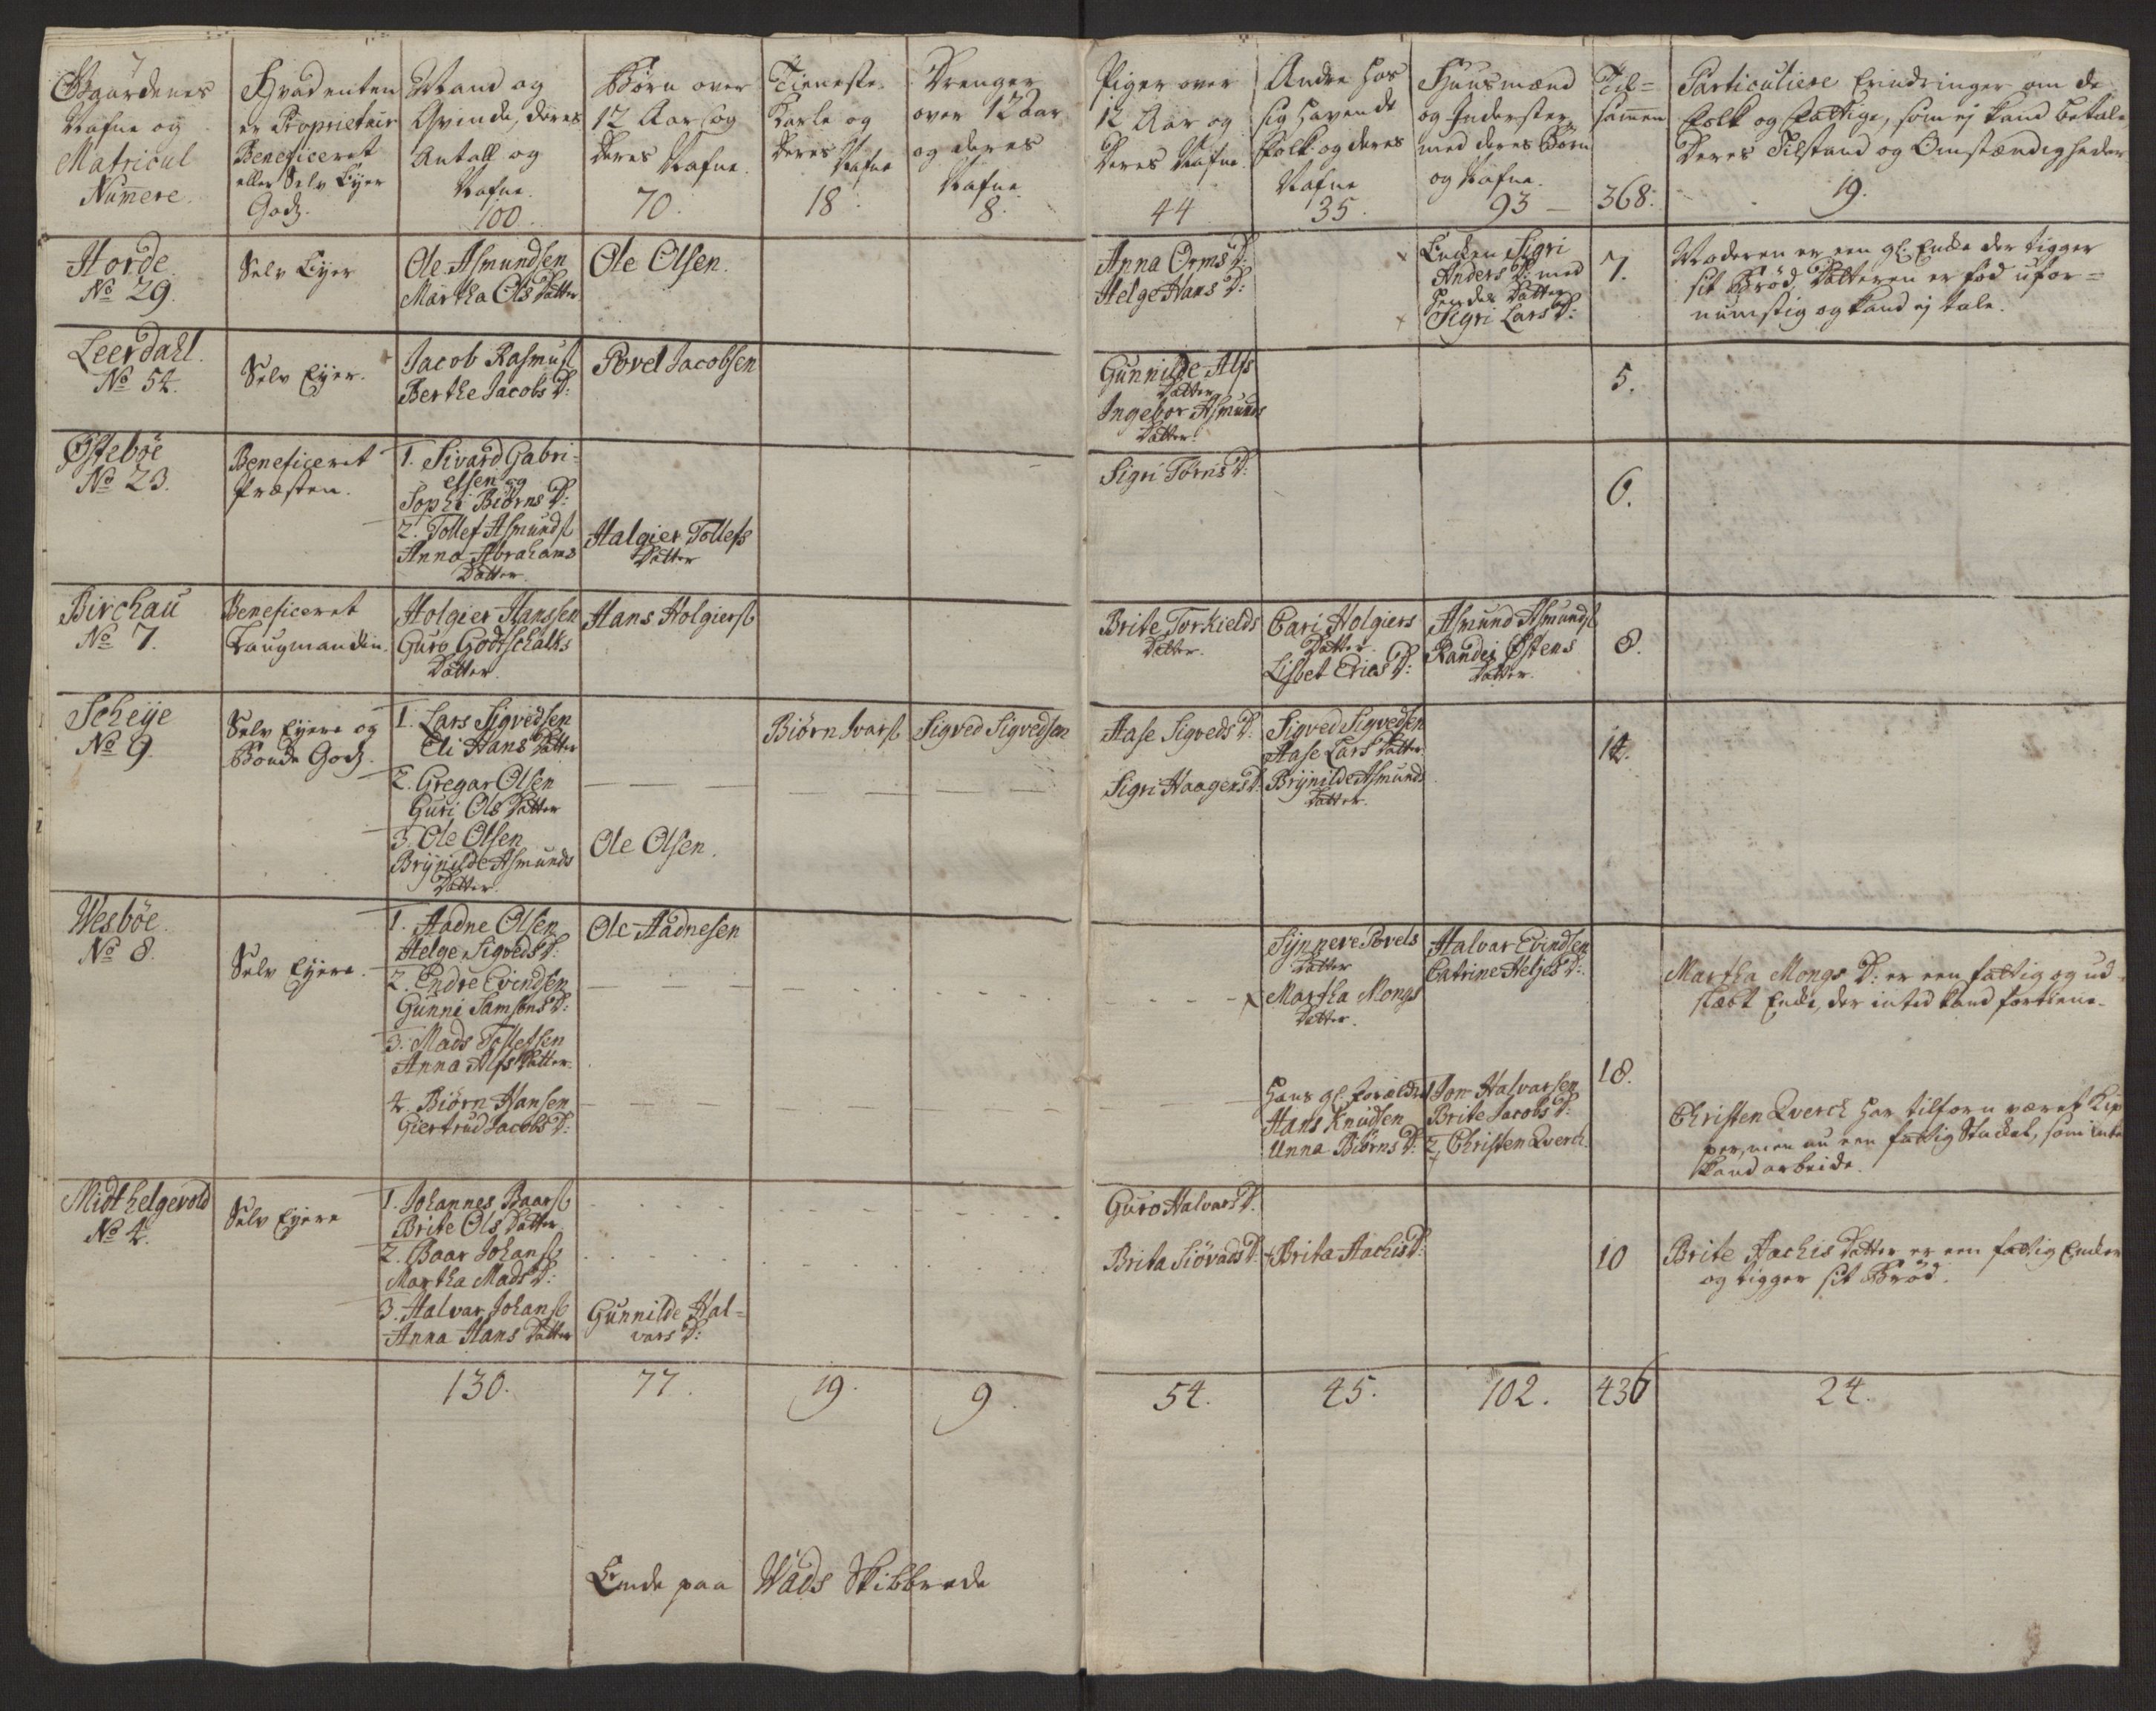 Gaardenes
Nafne og
Matricul
Numere.
Hvad enten
er Proprietair
Beneficeret
eller Selv Eyer
Godz.
Mand og
Qvinde, deres
Antall og
Nafne.
100.
Børn over
12 Aar og
deres
Nafne.
70.
Tieneste
Karle og
deres
Nafne
18.
Drenger
over 12 Aar
og deres
Nafne.
8.
Piger over
12 Aar og
deres Nafne.
44
Andre hos
sig havende
Folk og deres
Nafne
35.
Huusmænd
og Inderster
med deres Børn
og Nafne.
93
Til=
sammen
368.
Particuliere Erindringer om de
Folk og Fattige, som ej kand betale,
deres Tilstand og Omstændigheder
19.
Horde
No 29.
Selv Eyer
Ole Asmundsen
Martha Ols Datter
Ole Olsen.
Anna Orms D:
Helge Hans D:
Encken Sigri
Anders D: med
hendes Datter
Sigri Lars D:
7.
Moderen er een gl. Encke der tigger
sit Brød, Datteren er fød ufor=
numstig og kand ej tale.
Leerdahl.
No 54.
Selv Eyer.
Jacob Rasmus
Berthe Jacobs D:
Povel Jacobsen
Gunnilde Alfs
Datter
Ingebor Asmunds
Datter.
5.
Østebøe
No 23.
Beneficeret
Præsten.
1. Sivard Gabri-
elsen og
Sophi Biørns D:
2. Tollef Asmunds
Anna Abrahams
Datter.
Halgier Tollefs
Datter
Sigri Tørris D:
6.
Birchau
No 7.
Beneficeret
Laugmanden.
Holgier Hanssen
Guro Godtschalks
Datter.
Hans Holgiers
Brite Torkields
Datter.
Cari Holgiers
Datter.
Lisbet Erics D:
Asmund Asmunds
Randei Østens
Datter.
8.
Scheije
No 9.
Selv Eyere og
Bonde Godz.
1. Lars Sigvedsen
Eli Hans Datter
2. Gregar Olsen
Guri Ols Datter
3. Ole Olsen
Brynilde Asmunds
Datter.
Ole Olsen.
Biørn Ivars
Sigved Sigvedsen
Aase Sigveds D:
Sigri Haagens D:
Sigved Sigvedsen
Aase Lars Datter
Brynilde Asmunds
Datter.
14.
Wesbøe
No 8.
Selv Eyere.
1. Aadne Olsen
Helge Sigveds D:
2. Endre Evindsen
Gunni Samsons D:
3. Mads Tollefsen
Anna Alfs Datter.
4. Biørn Hansen
Giertrud Jacobs D:
Ole Aadnesen
Synnere Povels
Datter
Martha Mongs
Datter.
Hans gl. Forældre
Hans Knudsen
Unna Biørns D:
Halvar Evindsen
Catrine Heljes D:
1 Jon Halvarsen
Brite Jacobs D:
2. Christen Qverch
18.
Martha Mongs D: er een fattig og ud-
slæbt Encke, der inted kand fortiene.
Christen Qverch har tilforn været
men nu een fattig Stackel, som
kand arbeide.
Midthelgevold
No 4.
Selv Eyere
1. Johannes Baars
Brite Ols Datter
2. Baar Johans
Martha Mads D:
3. Halvar Johans
Anna Hans Datter
Gunnilde Hal=
vars D:
Guro Halvars D.
Brita Siøvads D.
Brita Aachis D:
10
Brite Aachis Datter er een fattig Encke
og tigger sit Brød.
130.
77.
19.
9.
54.
45.
102.
436
24.
Ende paa Wads Skibbrede